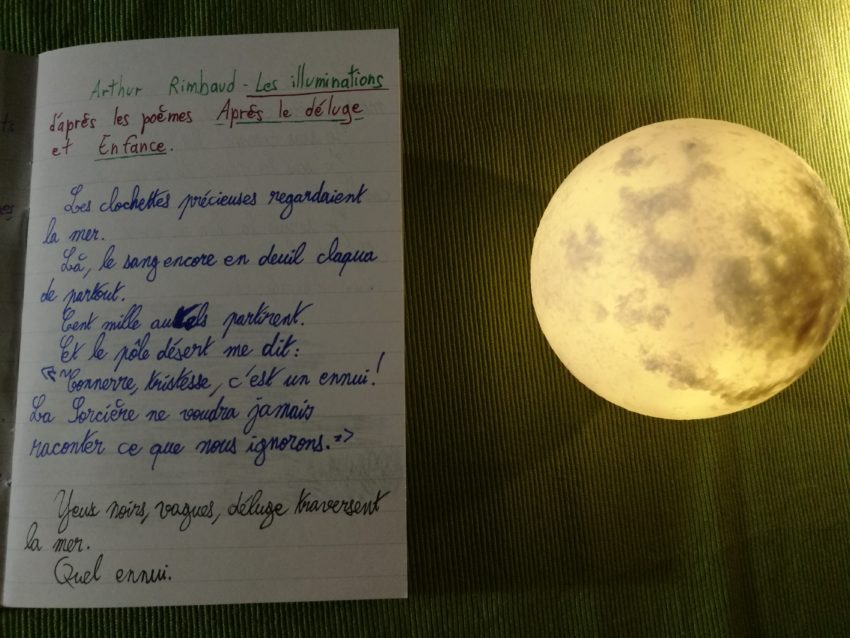 Arthur Rimbaud - Les illuminations
d'après les poèmes Après le déluge
et Enfance.
Les clochettes précieuses regardaient
la mer.
Là, le sang encore en deuil claqua
de partout.
Cent mille autels partirent.
Et le pôle désert me dit:
« Tonnerre, tristesse, c'est un ennui!
La Sorcière ne voudra jamais
raconter ce que nous ignorons. »
Yeux noirs, vagues, déluge traversent
la mer.
Quel ennui.